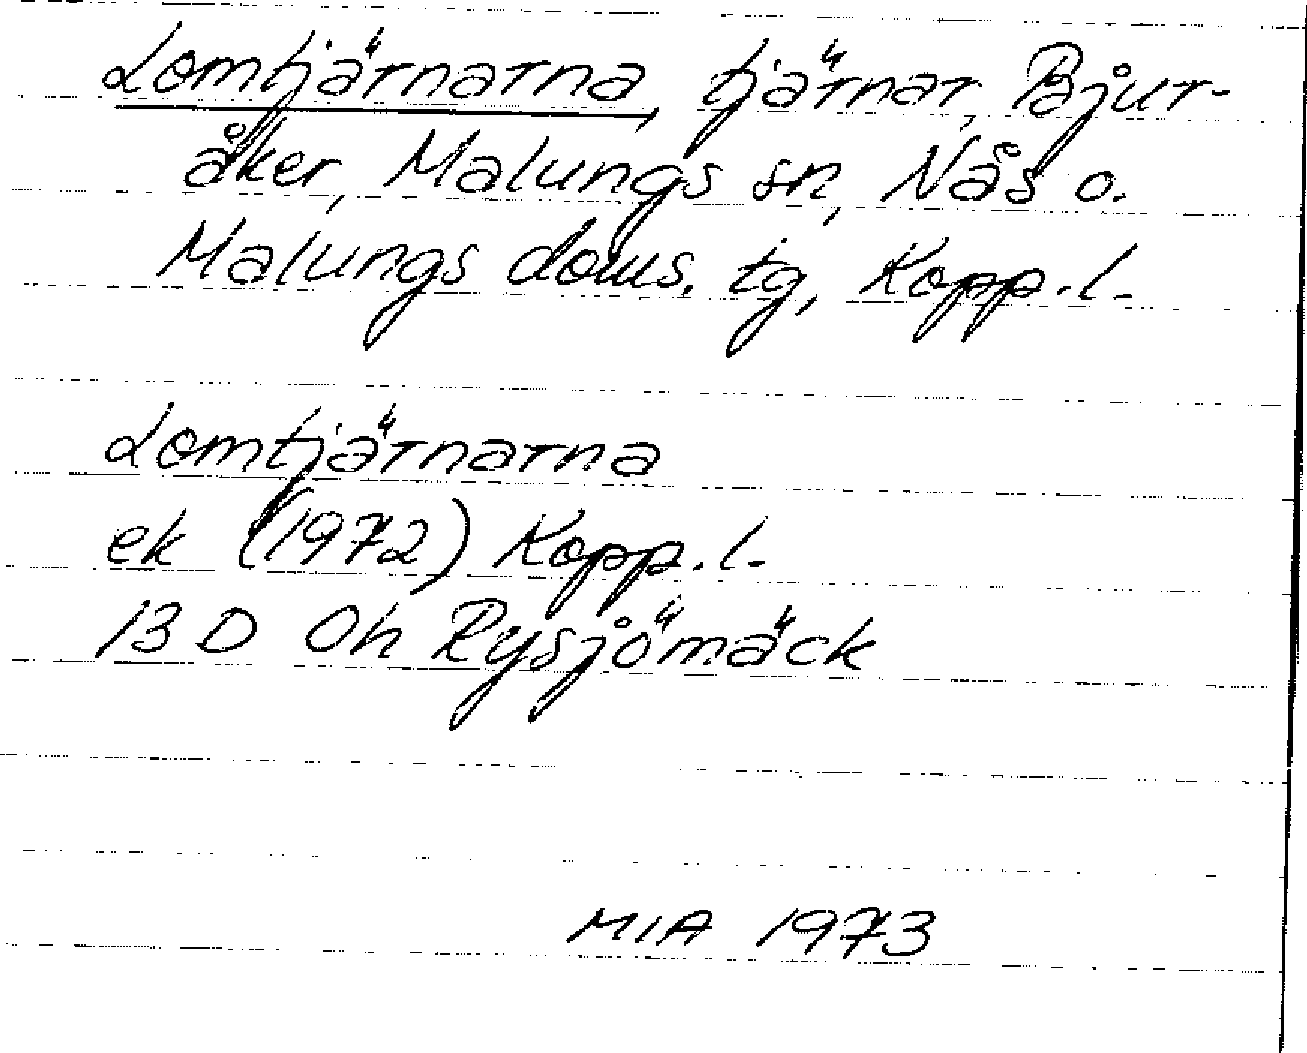 Lomtjärnarna, tjärnar, Bjur-
åker, Malungs sn, Nås o.
Malungs doms. tg, Kopp.l.
Lomtjärnarna
ek (1972) Kopp.l.
13 D 0h Rysjömäck
MIA 1973